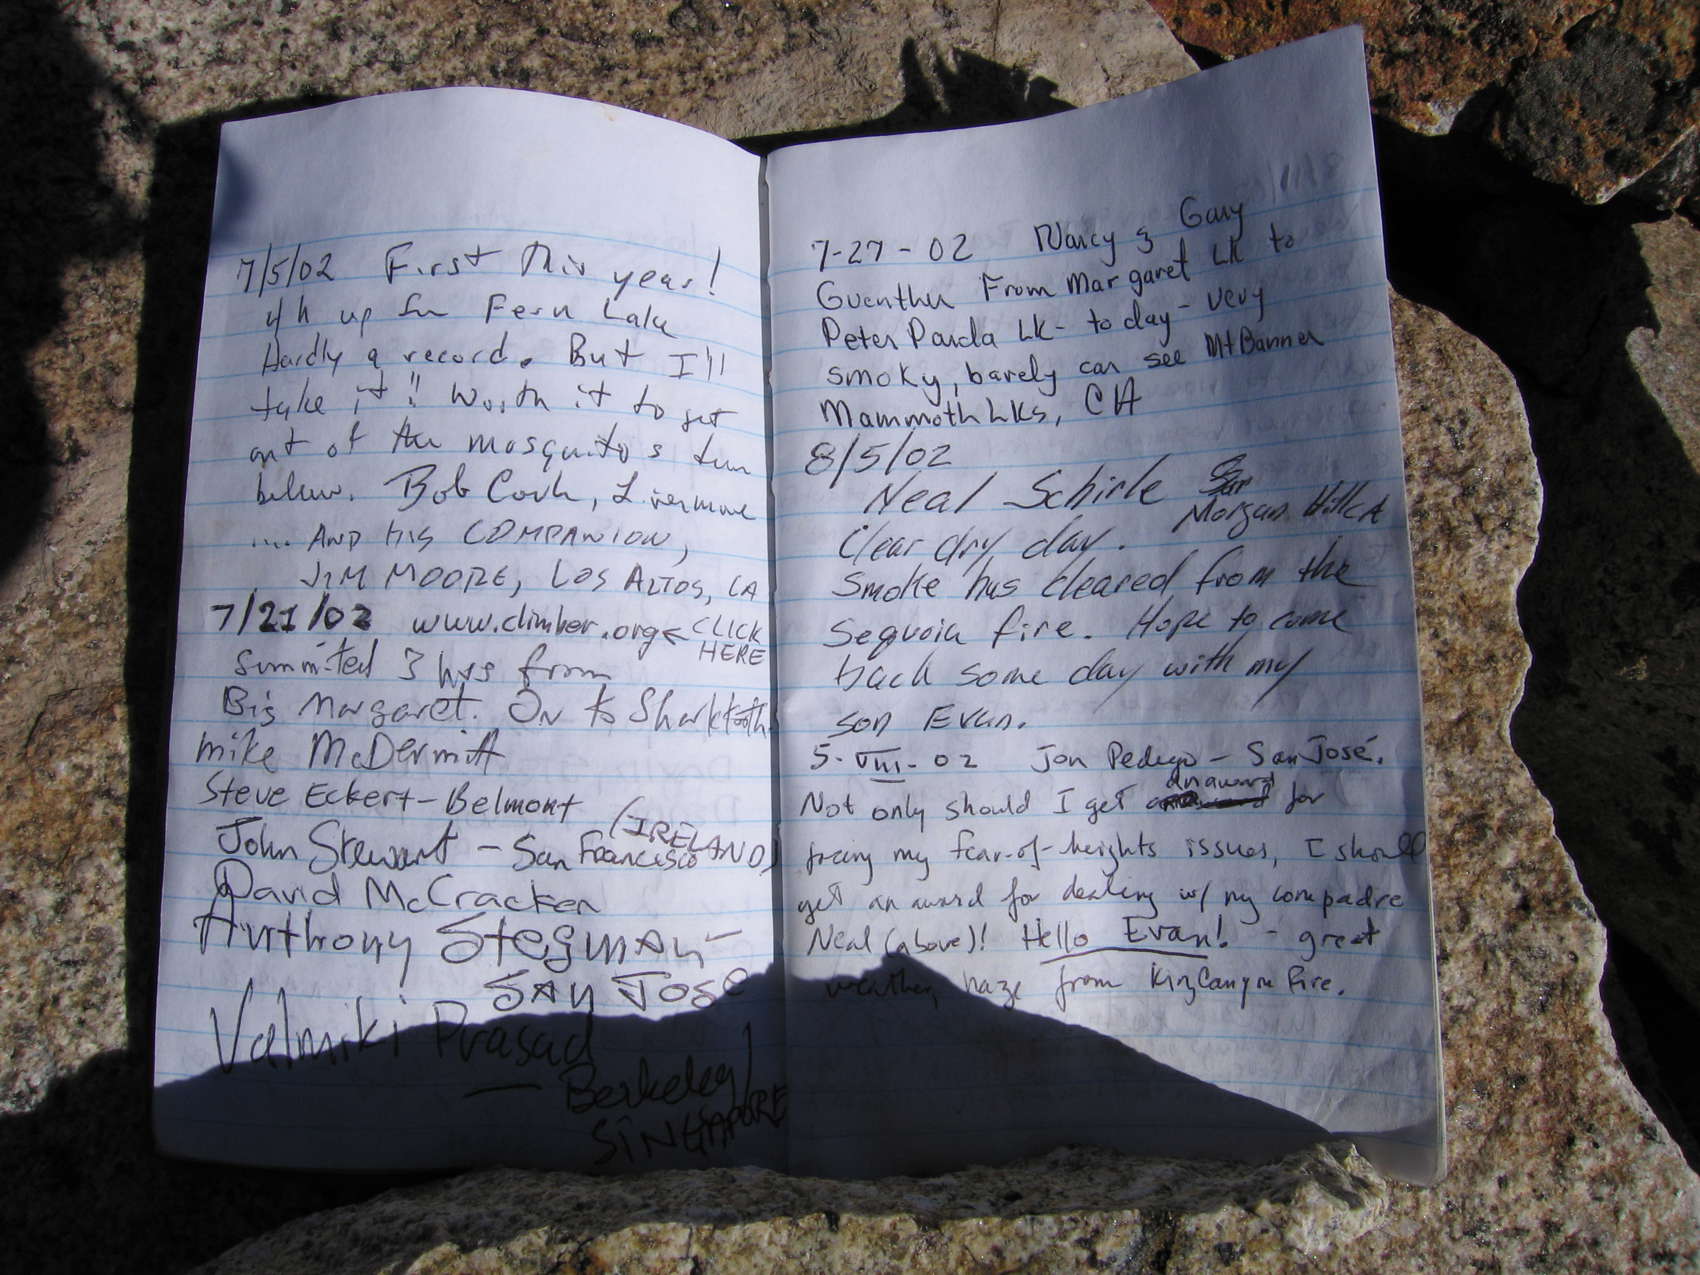 7/5/02 First this year!
4h up from Fern Lake
Hardly a record. But I'll
take it!! Worth it to get
out of the mosquitos down
below. Bob Cook, Livermore
.... AND HIS COMPANION,
JIM MOORE, LOS ALTOS, CA
7/21/02 www.climber.org ← CLICK
HERE
Summited 3 hrs from
Big Margaret. On to Sharktooth
Mike McDermitt
Steve Eckert - Belmont
John Stewart - San Francisco (IRELAND)
David McCracken
Anthony Stegman -
SAN JOSE
Valmiki Prasad
— Berkeley /
SINGAPORE
7-27-02 Nancy & Gary
Guenther From Margaret Lk to
Peter Panda Lk - today - very
smoky, barely can see Mt Banner
Mammoth Lks, CA
8/5/02
Neal Schirle
Morgan Hill CA
Clear dry day.
Smoke has cleared from the
Sequoia fire. Hope to come
back some day with my
son Evan.
5-VIII-02 Jon Pedego - San José.
Not only should I get an award for
facing my fear-of-heights issues, I should
get an award for dealing w/ my compadre
Neal (above)! Hello Evan! - great
weather, haze from King Canyon Fire.